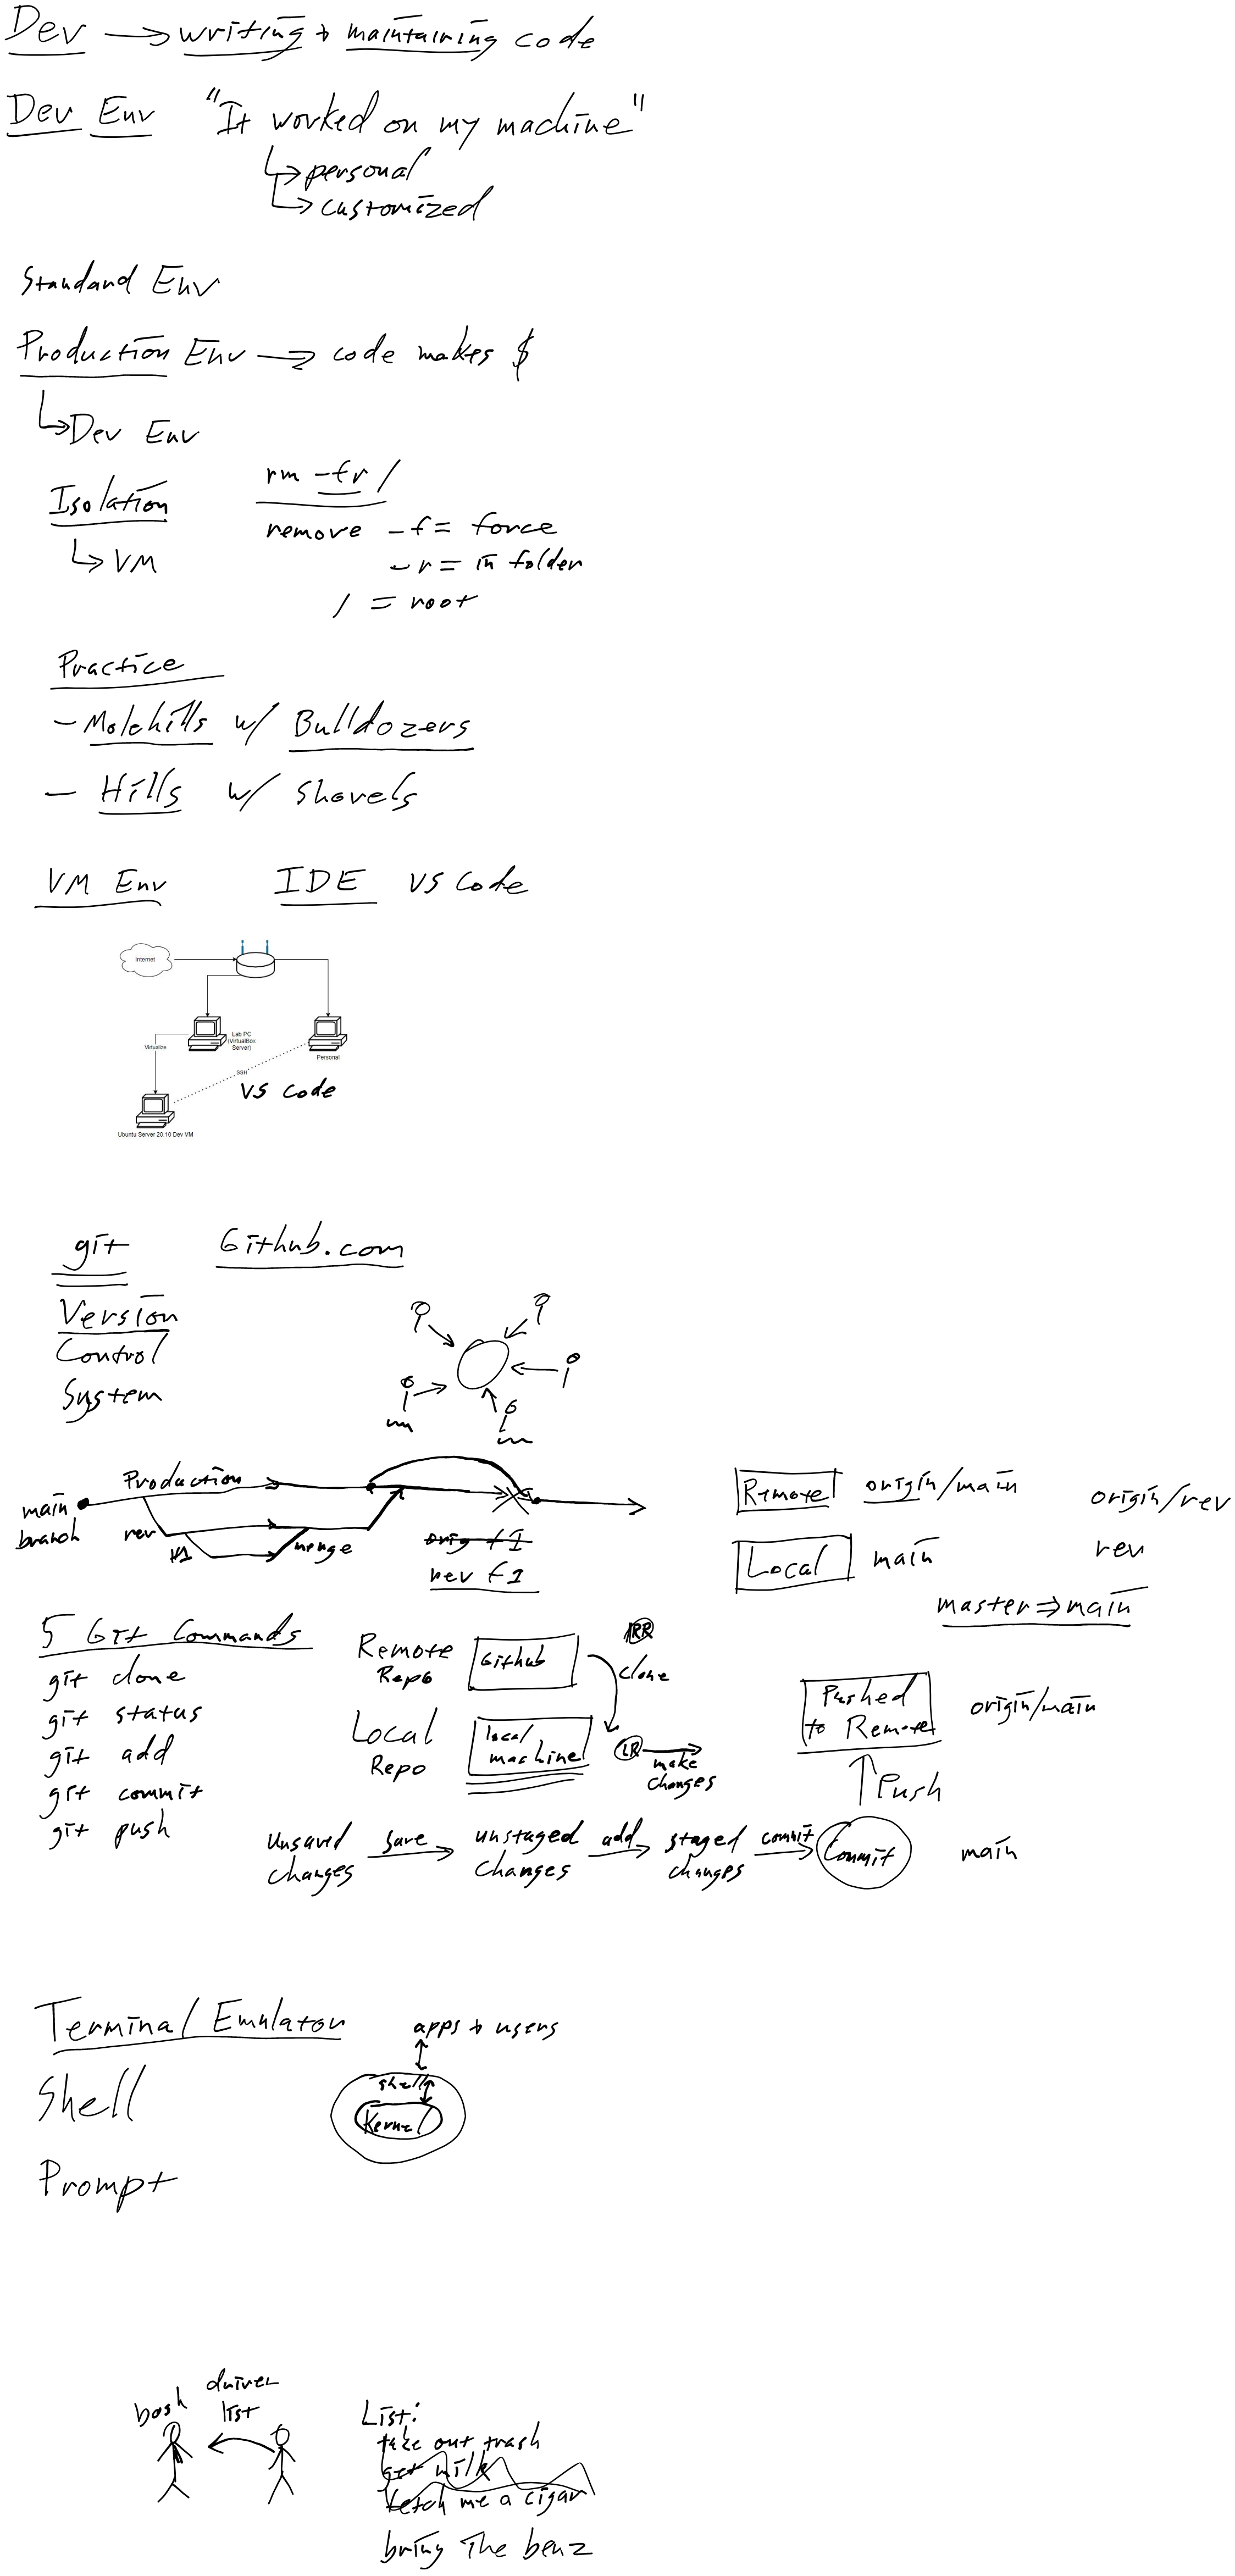 Dev → writing + maintaining code
Dev Env "It worked on my machine"
personal
customized
Standard Env
Production Env → code makes $
Dev Env
Isolation
VM
rm -fr /
remove -f = force
-r = in folder
/ = root
Practice
- Molehills w/ Bulldozers
- Hills w/ Shovels
VM Env IDE VS Code
Internet
Lab PC
(VirtualBox
Server)
Personal
Virtualize
SSH
VS Code
Ubuntu Server 20.10 Dev VM
git Github.com
Version
Control
System
main
branch
Production
rev
merge
orig f1
rev f1
Remote origin/main origin/rev
Local main rev
master ⇒ main
5 Git Commands
git clone
git status
git add
git commit
git push
Remote
Repo
Github
RR
clone
Local
Repo
local
machine
LR
make
changes
Pushed
to Remote
origin/main
Push
unsaved
changes
save
unstaged
changes
add
staged
changes
commit
Commit
main
Terminal Emulator
Shell
Prompt
apps + users
shell
Kernel
bash
driver
list
List:
take out trash
get milk
fetch me a cigar
bring the benz